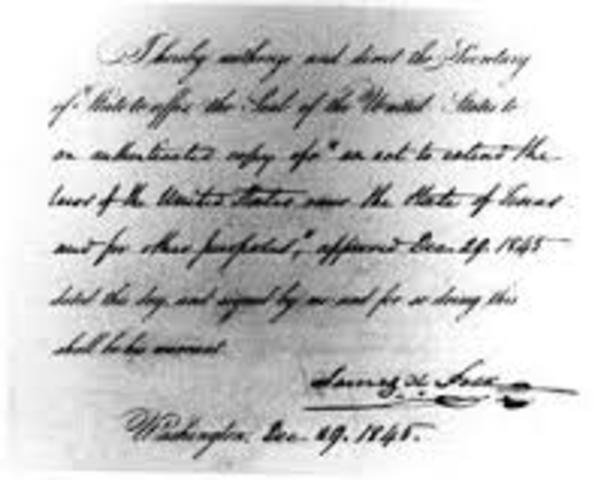 I hereby authorize and direct the Secretary
of State to affix the Seal of the United States to
an authenticated copy of "an act to extend the
laws of the United States over the State of Texas
and for other purposes", approved Dec. 29. 1845
dated this day, and signed by me and for so doing this
shall be his warrant.
James K. Polk
Washington, Dec. 29. 1845.